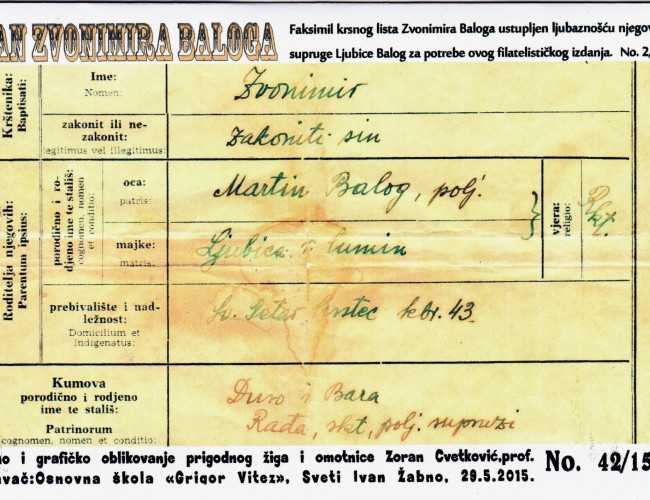 AN ZVONIMIRA BALOGA
Faksimil krsnog lista Zvonimira Baloga ustupljen ljubaznošću njegov
supruge Ljubice Balog za potrebe ovog filatelističkog izdanja. No. 2,
Krštenika:
Baptisati:
Ime:
Nomen:
Zvonimir
zakonit ili ne-
zakonit:
legitimus vel illegitimus:
zakoniti sin
Roditelja njegovih:
Parentum ipsius:
porodično i ro-
djeno ime te stališ:
cognomen, nomen
et conditio:
oca:
patris:
Martin Balog, polj.
majke:
matris:
Ljubica
vjera:
religio:
prebivalište i nad-
ležnost:
Domicilium et
indigenatus:
Sv. Petar kbr. 43.
Kumova
porodično i rodjeno
ime te stališ:
Patrinorum
cognomen, nomen et conditio:
Duro i Bara
Rađa, rkt, polj. supruzi
no i grafičko oblikovanje prigodnog žiga i omotnice Zoran Cvetković,prof.
avač:Osnovna škola «Grigor Vitez», Sveti Ivan Žabno, 29.5.2015.
No. 42/15